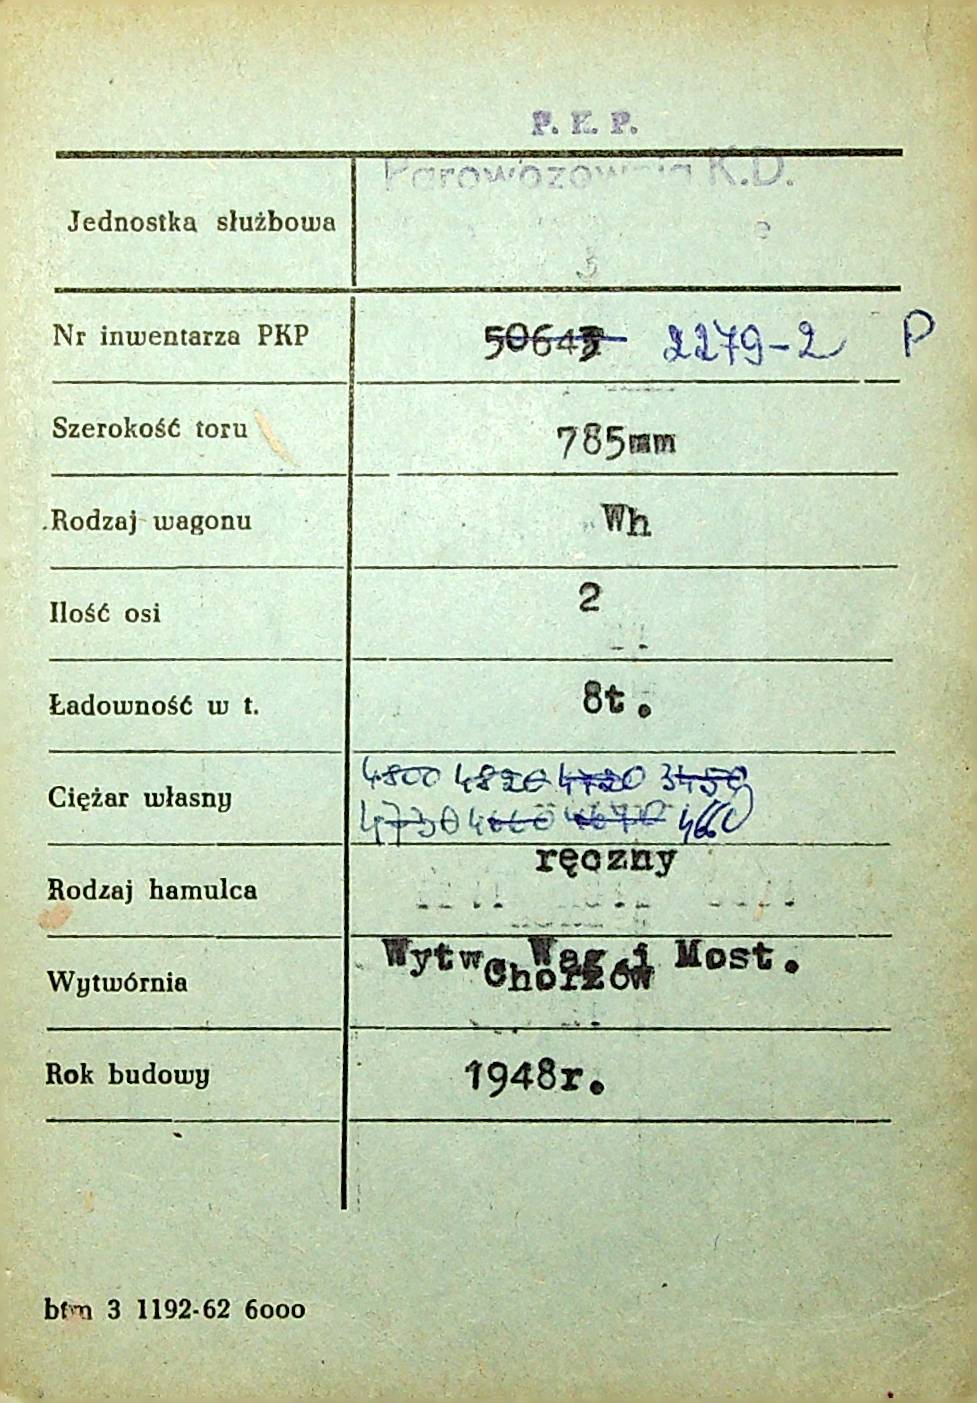 P. K. P.
Parowozownia K.D.
Jednostka służbowa
Nr inwentarza PKP 50643 2279-2 P
Szerokość toru 785mm
Rodzaj wagonu Wh
Ilość osi 2
Ładowność w t. 8t.
4800 4820 4720 3450
Ciężar własny
4730 4660 4670 4660
Rodzaj hamulca ręczny
Wytwórnia Wytw. Wag. i Most.
Chorzów
Rok budowy 1948r.
3 1192-62 6000